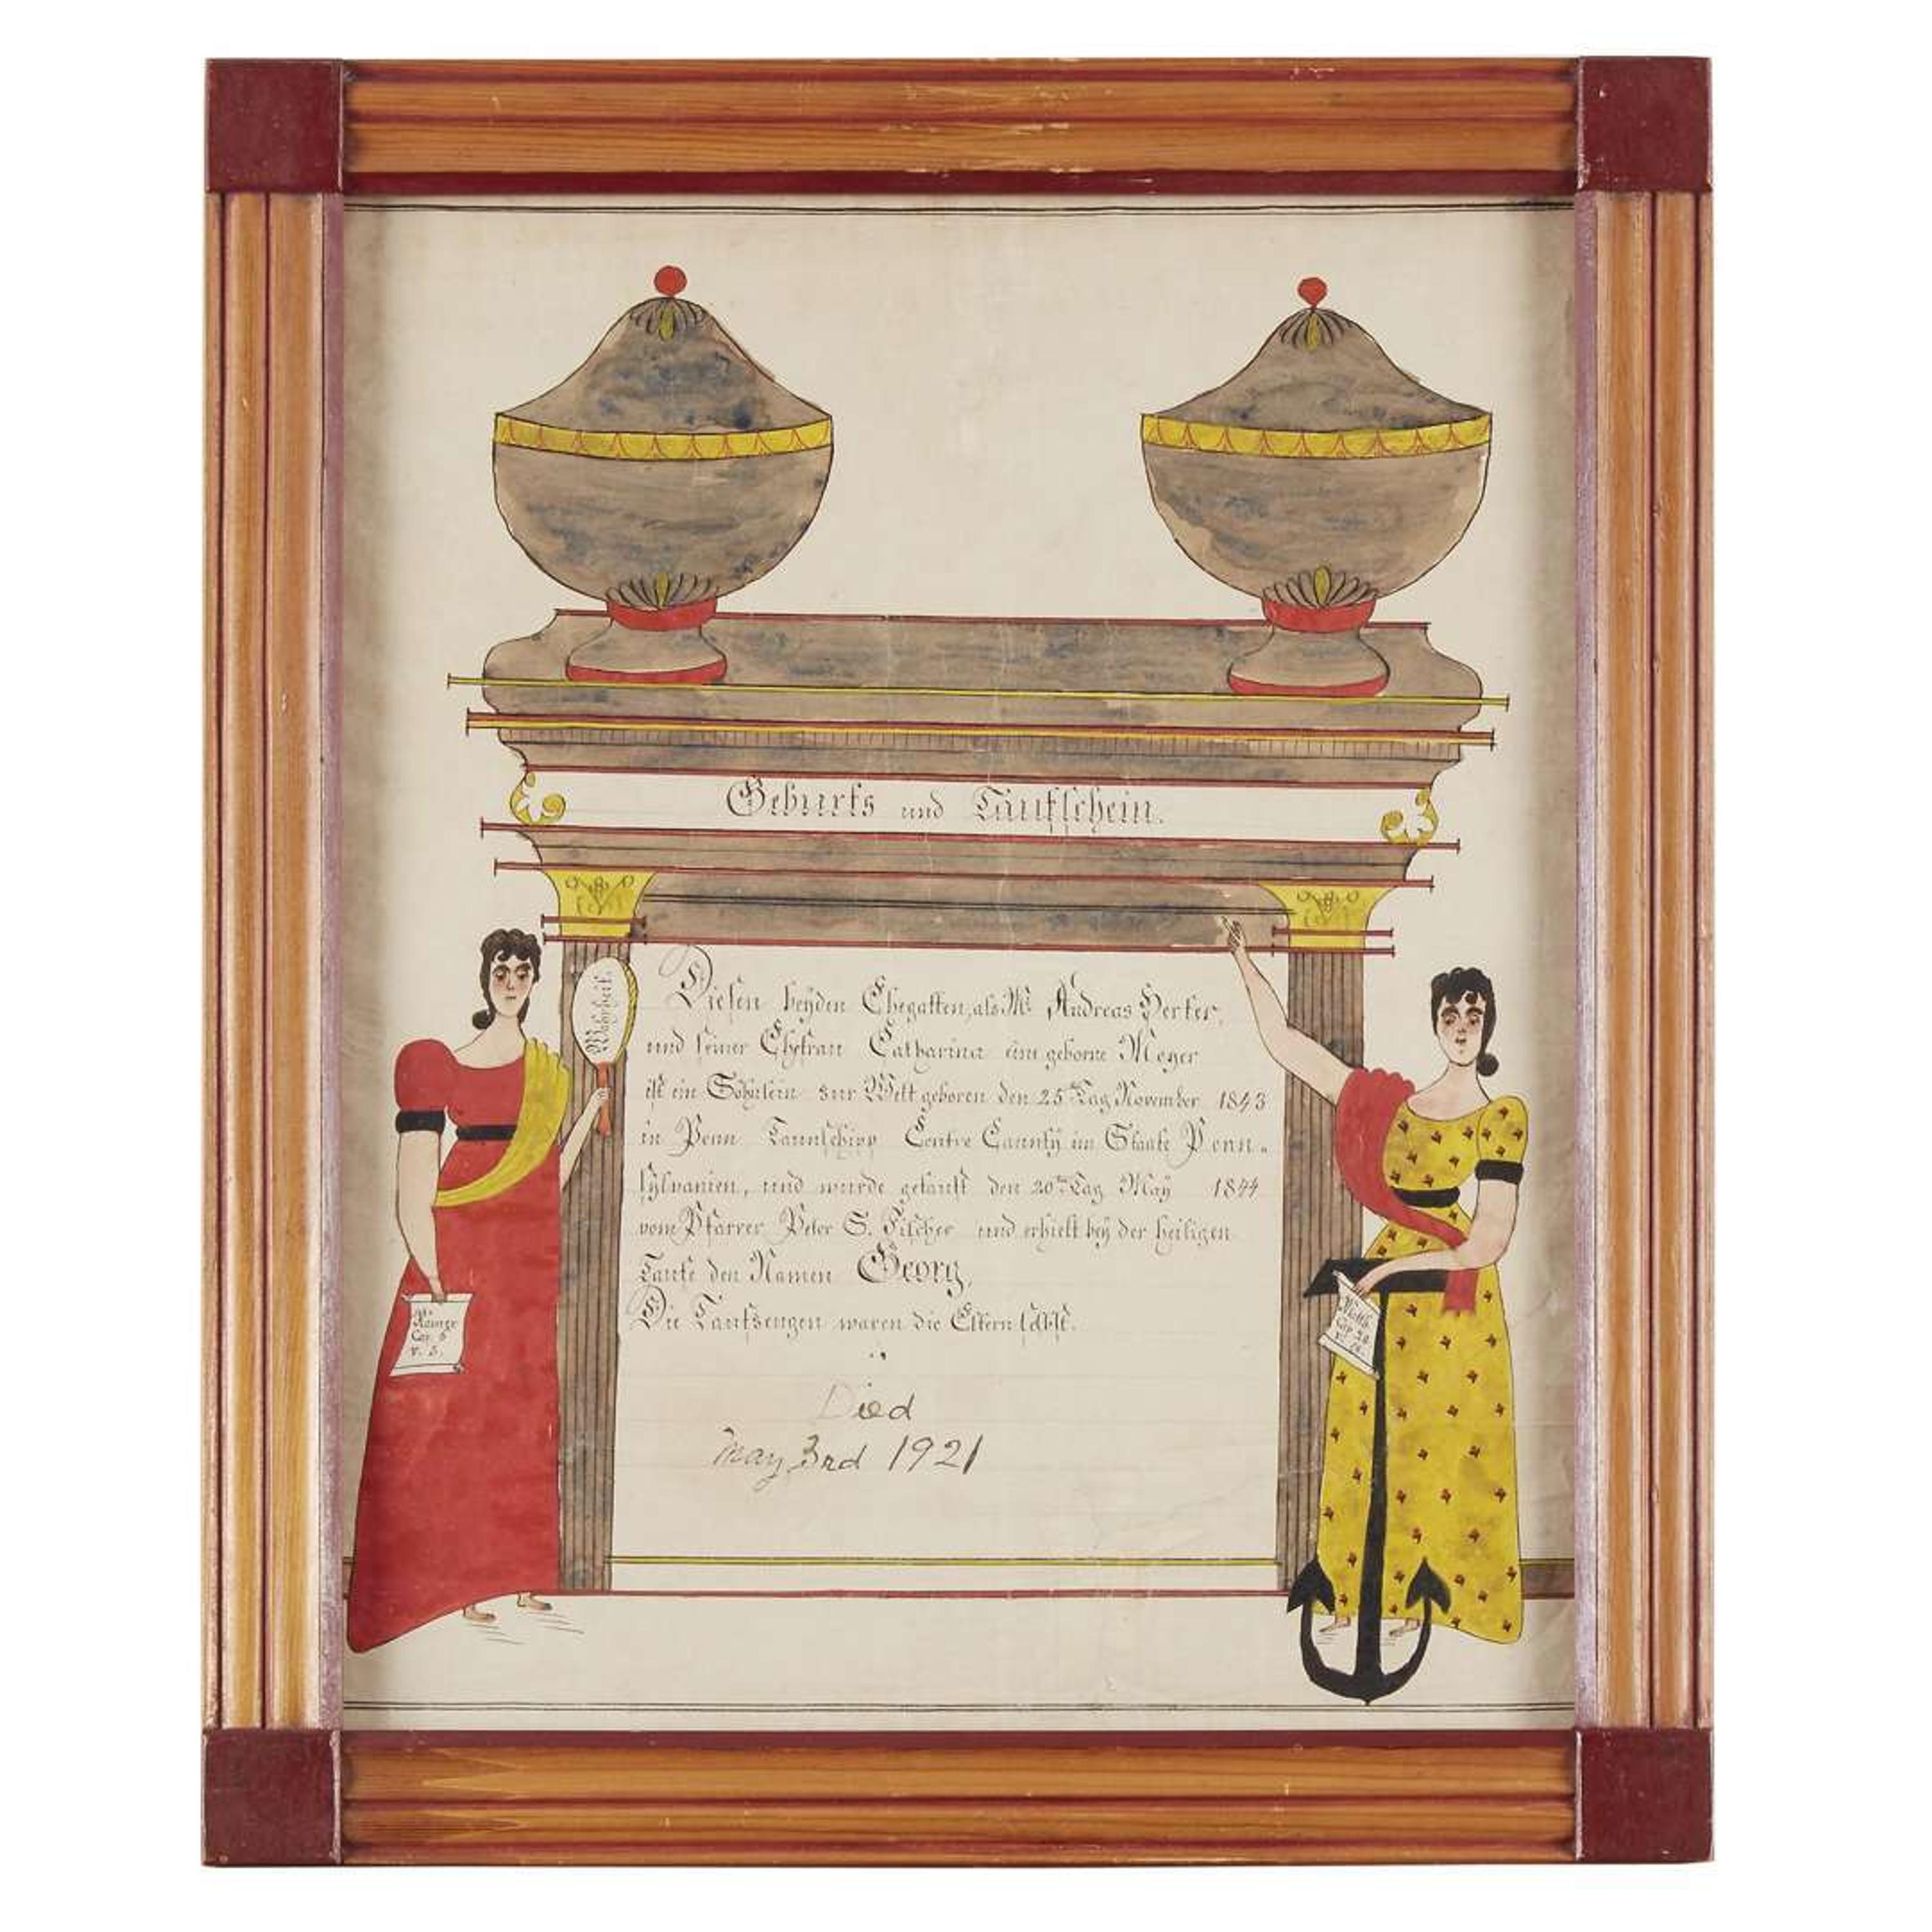 Geburts und Taufschein.
Wahrheit.
Diesen beyden Ehegatten, als Mr. Andreas Herter,
und seiner Ehefrau Catharina eine geborne Meyer
ist ein Söhnlein zur Welt geboren den 25te Tag November 1843
in Penn Taunschipp Centre Caunty im Staate Penn=
sylvanien, und wurde getauft den 20te Tag May 1844
vom Pfarrer Peter S. Fischer und erhielt bey der heiligen
Taufe den Namen Georg.
Die Taufzeugen waren die Eltern selbst.
Died
May 3rd 1921
Römer
Cap. 6
v. 3.
Matth.
Cap. 28
v. 19.